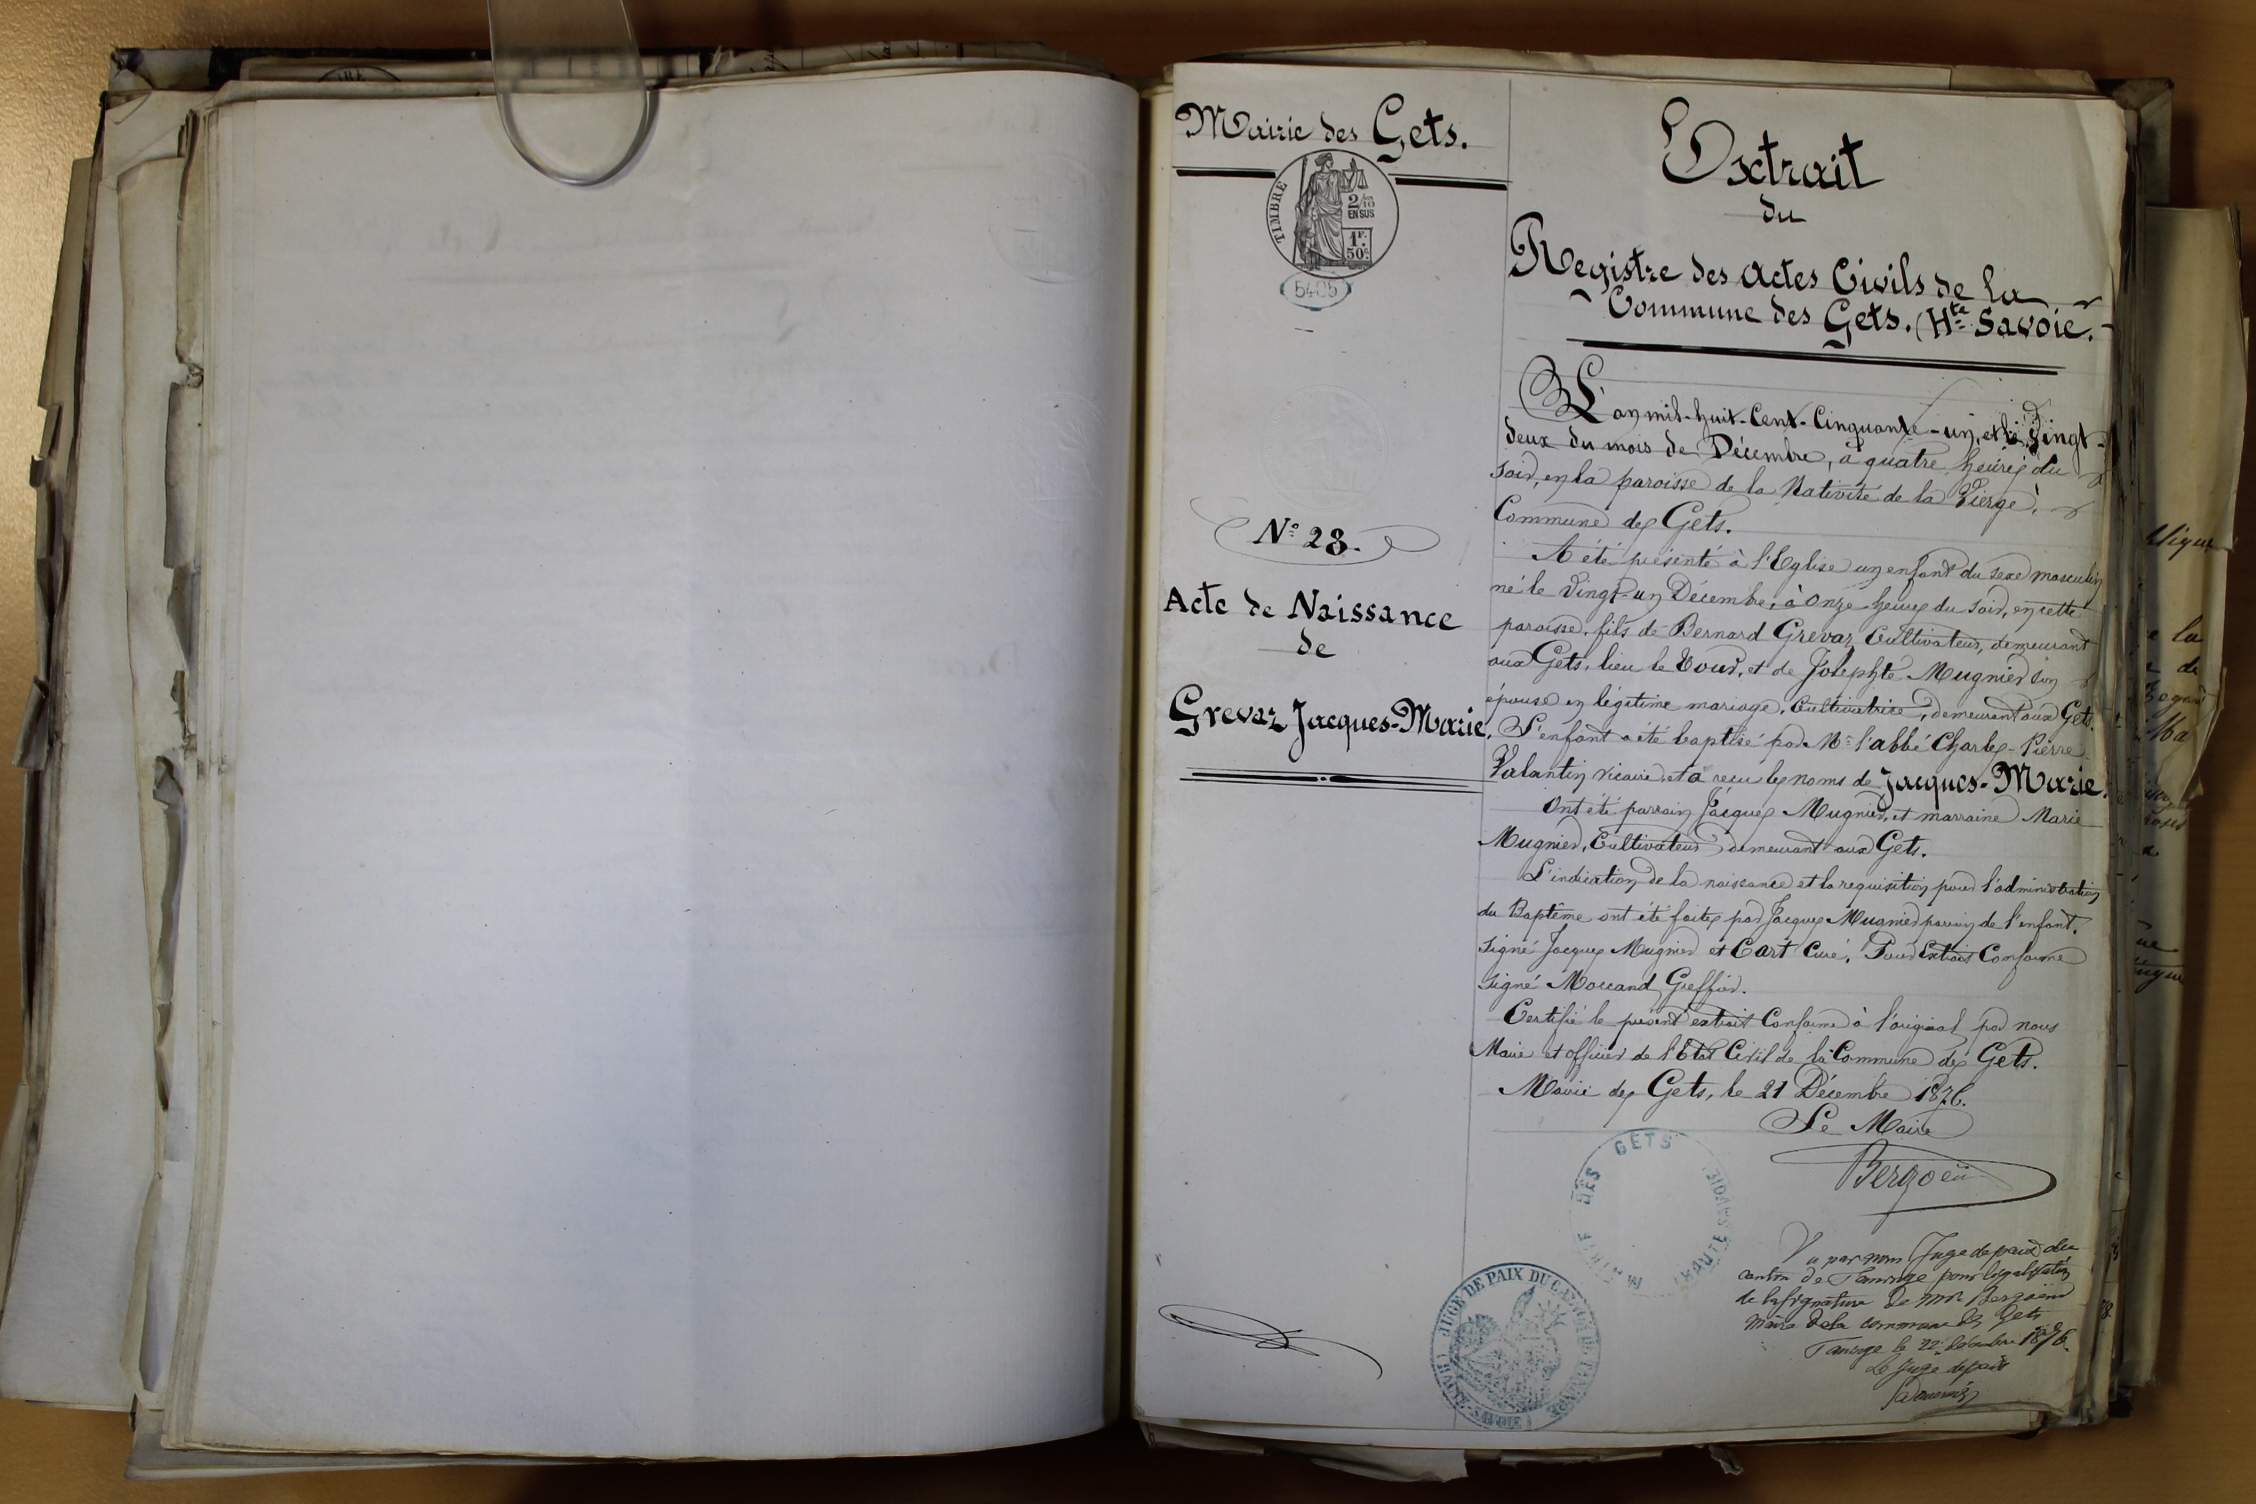 Mairie des Gets.
TIMBRE
2/10
EN SUS
1F.
50c.
5405
N° 28.
Acte de Naissance
de
Grevaz Jacques-Marie.
Extrait
du
Registre des Actes Civils de la
Commune des Gets. (Hte Savoie.
L'an mil-huit-Cent-Cinquante-un, et le Vingt-
deux du mois de Décembre, à quatre heures du
soir, en la paroisse de la Nativité de la Vierge,
Commune des Gets.
A été présenté à l'Eglise un enfant du sexe masculin
né le Vingt-un Décembre, à Onze heures du soir, en cette
paroisse, fils de Bernard Grevaz Cultivateur, demeurant
aux Gets, lieu le Tour, et de Josephte Mugnier son
épouse en légitime mariage, Cultivatrice, demeurant aux Gets.
L'enfant a été baptisé par Mr l'abbé Charles-Pierre
Valantin vicaire, et a reçu les noms de Jacques-Marie.
Ont été parrain Jacques Mugnier, et marraine Marie
Mugnier, Cultivateurs demeurant aux Gets.
L'indication de la naissance et la requisition pour l'administration
du Baptême ont été faites par Jacques Mugnier parrin de l'enfant.
Signé Jacques Mugnier et Cart Curé. Pour Extrait Conforme
signé Moccand Greffier.
Certifié le présent extrait Conforme à l'original par nous
Maire et officier de l'Etat Civil de la Commune des Gets.
Mairie des Gets, le 21 Décembre 1876.
Le Maire
Bergoën
MAIRIE DES GETS (HAUTE SAVOIE)
JUGE DE PAIX DU CANTON DE TANINGE (HAUTE-SAVOIE)
Vu par nous Juge de paix du
canton de Taninge pour légalisation
de la signature de Mr Bergoend
Maire de la commune des Gets
Taninge le 22 Décembre 1876.
Le Juge de paix
e la